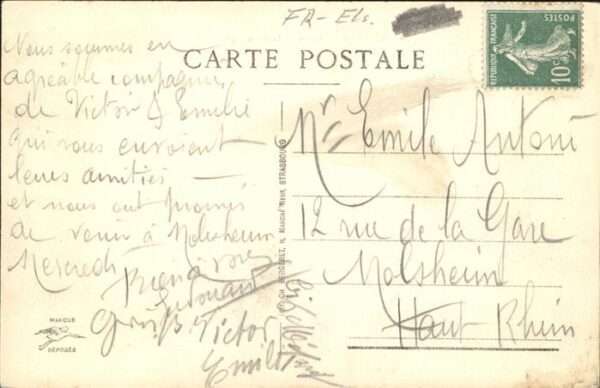 FR-Els.
CARTE POSTALE
POSTES
REPUBLIQUE FRANÇAISE
10c
Nous sommes en
agréable compagnie
de Victor & Emilie
qui vous envoient
leurs amitiés —
et nous ont promis
de venir à Molsheim
Mercredi
Victor
Emilie
Mr Emile Antoni
12 rue de la Gare
Molsheim
Haut-Rhin
STRASBOURG
MARQUE
DÉPOSÉE